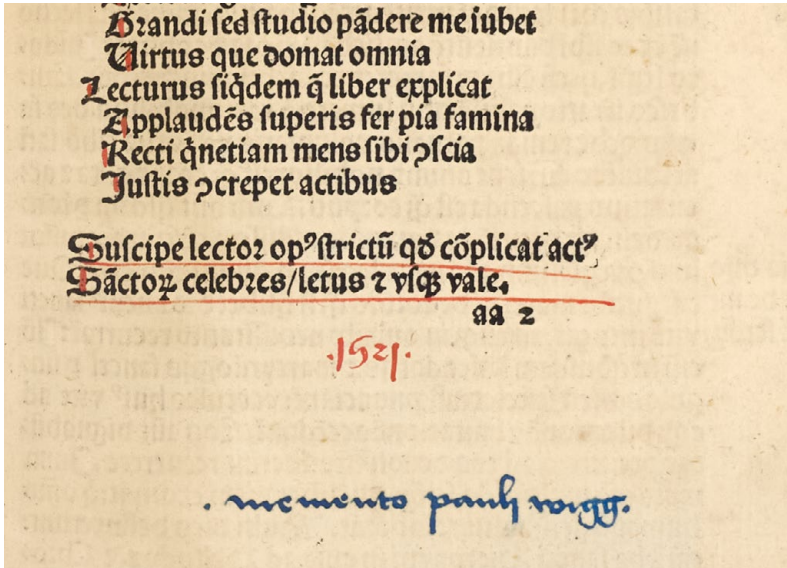 Grandi sed studio pādere me iubet
Uirtus que domat omnia
Lecturus siq̄dem q̄ liber explicat
Applaudēs superis fer pia famina
Recti q̄netiam mens sibi ꝯscia
Justis ꝯcrepet actibus
Suscipe lector opꝰ strictū qđ cōplicat actꝰ
Sāctoꝝ celebres/letus ⁊ vsqꝫ vale.
aa 2
.1521.
. memento pauli wigg.